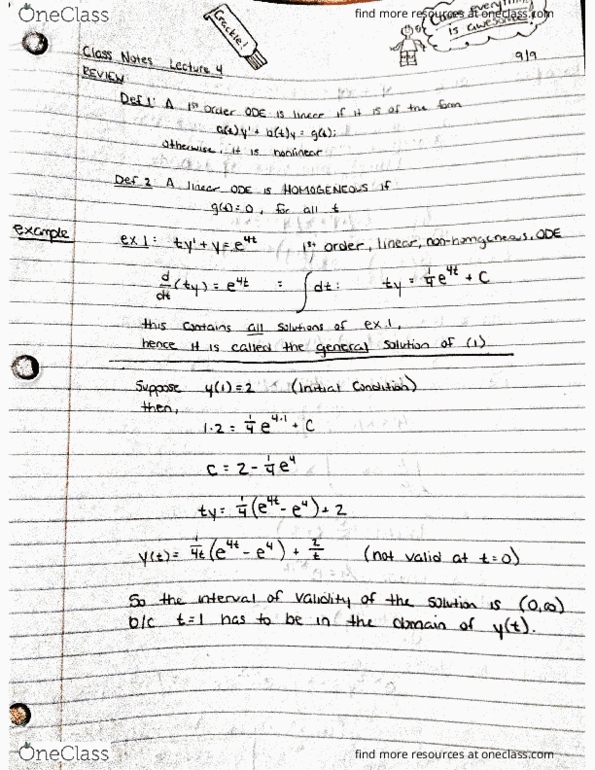 OneClass
find more resources at oneclass.com
Crackle!
everything
is awesome
9/9
Class Notes Lecture 4
REVIEW
Def 1: A 1st order ODE is linear if it is of the form
a(t)y' + b(t)y = g(t);
otherwise, it is nonlinear
Def 2: A linear ODE is HOMOGENEOUS if
g(t)=0, for all t
example
ex 1: ty' + y = e^{4t} 1st order, linear, non-homgeneous, ODE
d/dt (ty) = e^{4t} = ∫ dt: ty = 1/4 e^{4t} + C
this contains all solutions of ex 1,
hence it is called the general solution of (1)
Suppose y(1)=2 (Initial Condition)
then,
1·2 = 1/4 e^{4·1} + C
C = 2 - 1/4 e^4
ty = 1/4 (e^{4t} - e^4) + 2
y(t) = 1/4t (e^{4t} - e^4) + 2/t (not valid at t=0)
So the interval of validity of the solution is (0,∞)
b/c t=1 has to be in the domain of y(t).
OneClass
find more resources at oneclass.com